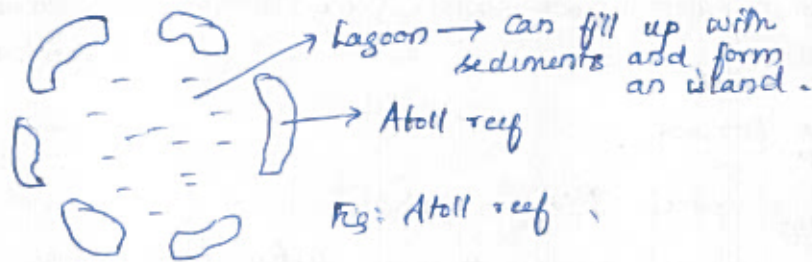 Lagoon → can fill up with
sediments and form
an island.
Atoll reef
Fig: Atoll reef